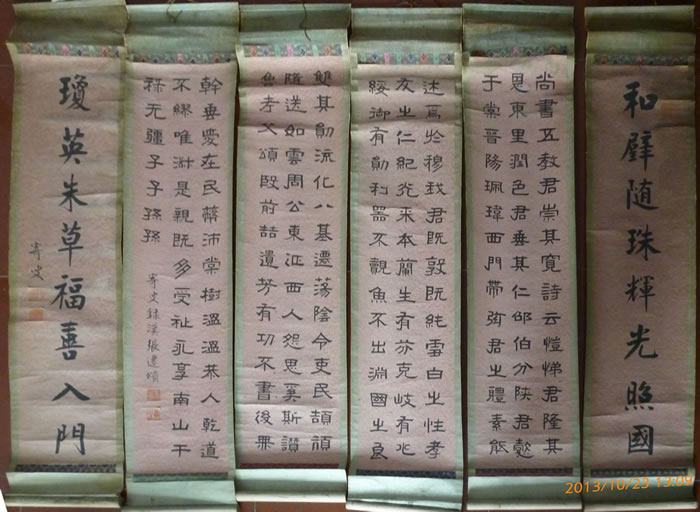 和璧随珠輝光照國
尚書五教君崇其寬詩云愷悌君隆其
恩東里潤色君垂其仁邵伯分陝君懿
于棠晉陽珮瑋西門帶弦君之體素能
述焉於穆我君既敦既純雪白之性孝
友之仁紀行來本蘭生有芬克岐有兆
綏御有勛利器不覿魚不出淵國之良
雙其勛流化八基遷蕩陰令吏民頡頏
隨送如雲周公東征西人怨思奚斯讚
魯考父頌殷前喆遺芳有功不書後無
幹垂愛在民蔽沛棠樹溫溫恭人乾道
不繆唯淑是親既多受祉永享南山干
祿无疆子子孫孫
寄史錄漢張遷頌
瓊英朱草福善入門
寄史
2013/10/25 13:09